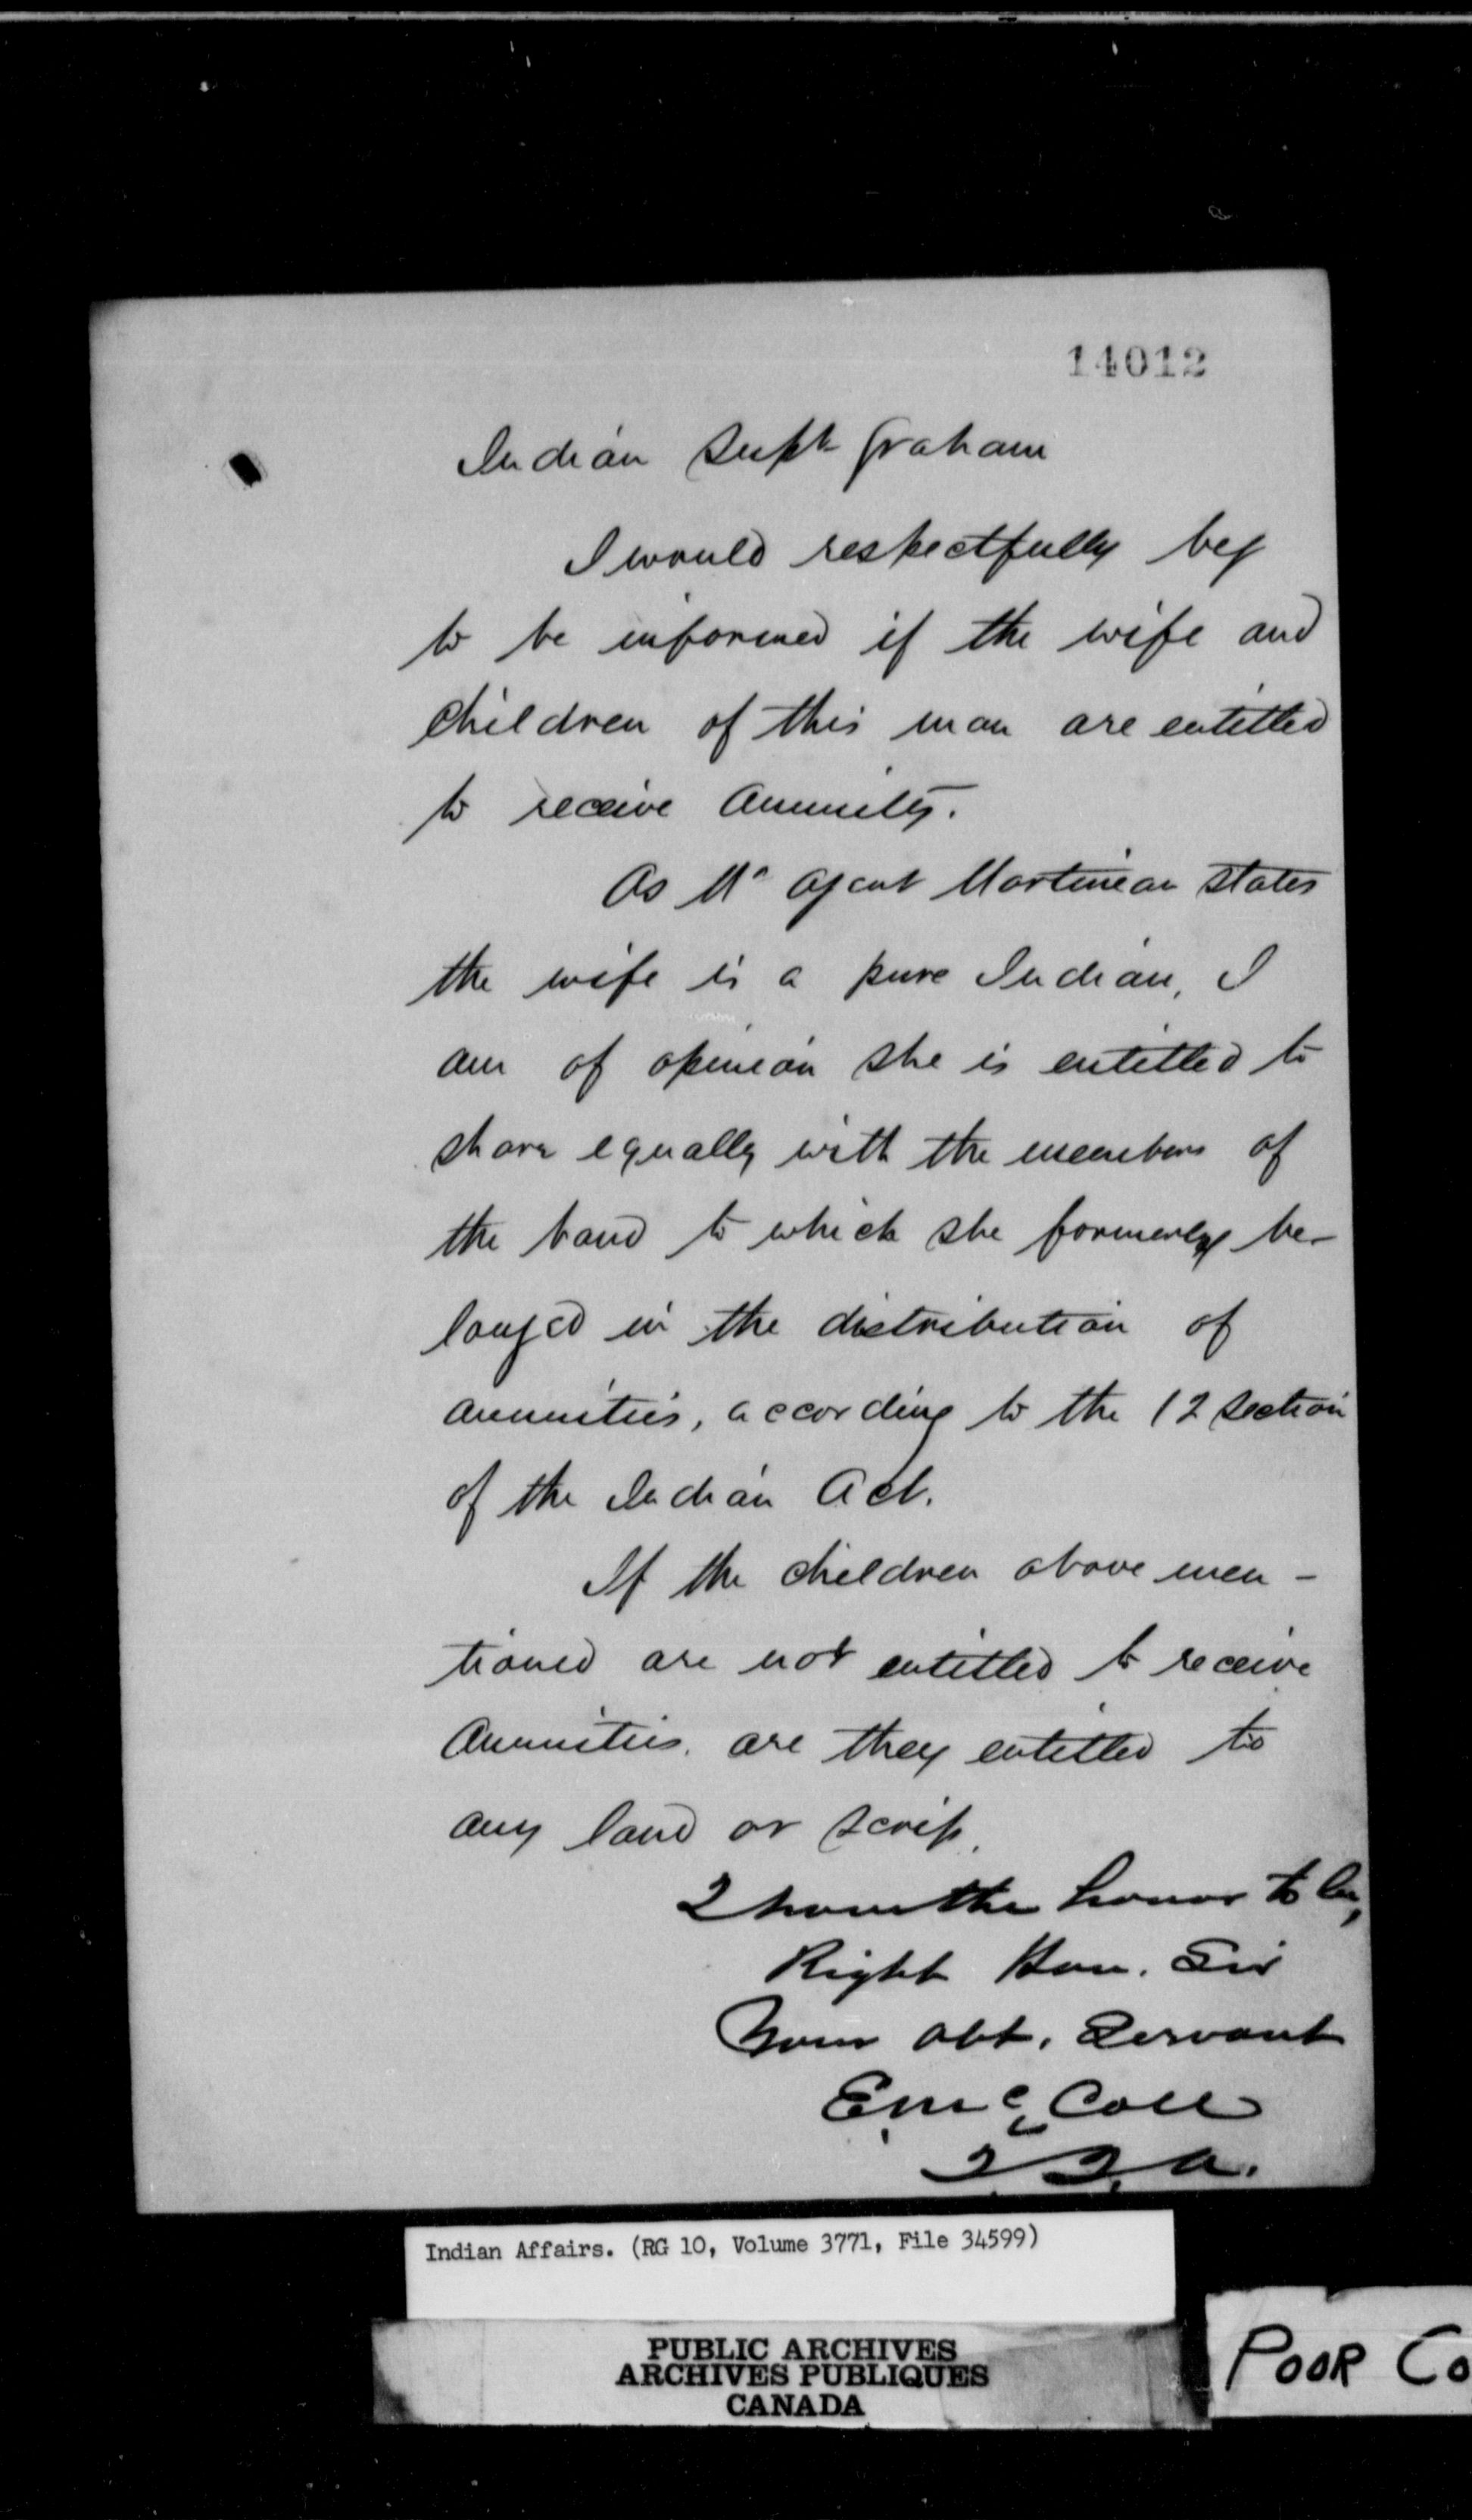 14012
Indian Supt Graham
I would respectfully beg
to be informed if the wife and
children of this man are entitled
to receive Annuity.
As Mr Agent Martineau states
the wife is a pure Indian, I
am of opinion she is entitled to
share equally with the members of
the band to which she formerly be-
longed in the distribution of
annuities, according to the 12 Section
of the Indian Act.
If the children above men-
tioned are not entitled to receive
Annuities. are they entitled to
any land or scrip.
I have the honor to be,
Right Hon. Sir
Your obt. Servant
E McColl
I. I. A.
Indian Affairs. (RG 10, Volume 3771, File 34599)
PUBLIC ARCHIVES
ARCHIVES PUBLIQUES
CANADA
POOR CO